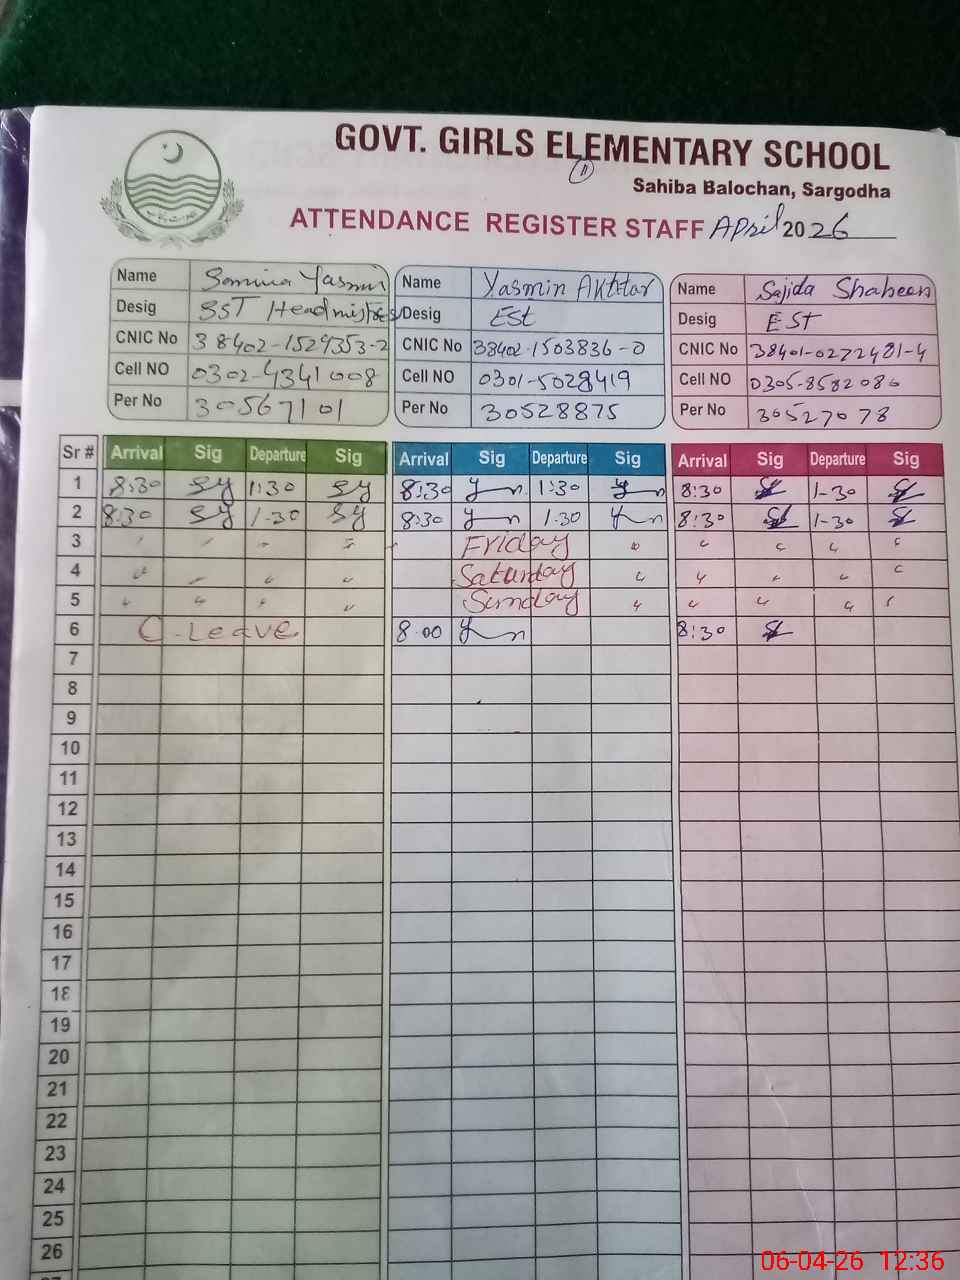 GOVT. GIRLS ELEMENTARY SCHOOL
11
Sahiba Balochan, Sargodha
ATTENDANCE REGISTER STAFF April 2026
Name Samina Yasmin Name Yasmin Akhtar Name Sajida Shaheen
Desig SST Headmistress Desig EST Desig EST
CNIC No 38402-1529353-2 CNIC No 38402-1503836-0 CNIC No 38401-0272481-4
Cell NO 0302-4341008 Cell NO 0301-5028419 Cell NO 0305-8582086
Per No 30567101 Per No 30528875 Per No 30527078
Sr # Arrival Sig Departure Sig Arrival Sig Departure Sig Arrival Sig Departure Sig
1 8:30 SY 1:30 SY 8:30 1:30 8:30 1-30
2 8:30 SY 1-30 SY 8:30 1.30 8:30 1-30
3 Friday
4 Saturday
5 Sunday
6 C. Leave 8.00 8:30
7
8
9
10
11
12
13
14
15
16
17
18
19
20
21
22
23
24
25
26
06-04-26 12:36